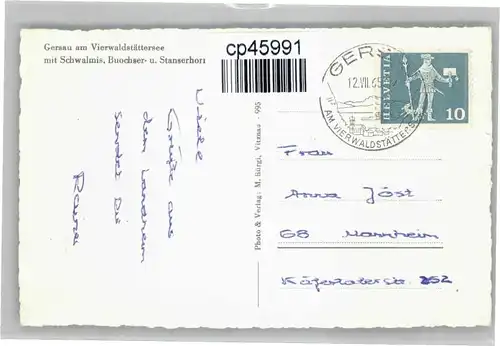 Gersau am Vierwaldstättersee
mit Schwalmis, Buochser- u. Stanserhorn
cp45991
GERS
12.VII.65
AM VIERWALDSTÄTTERS
HELVETIA
10
Viele
Grüße aus
dem Landheim
sendet Dir
Rainer
Photo & Verlag: M. Bürgi, Vitznau - 995
Frau
Anna Jöst
68 Mannheim
Käfertalerstr. 252